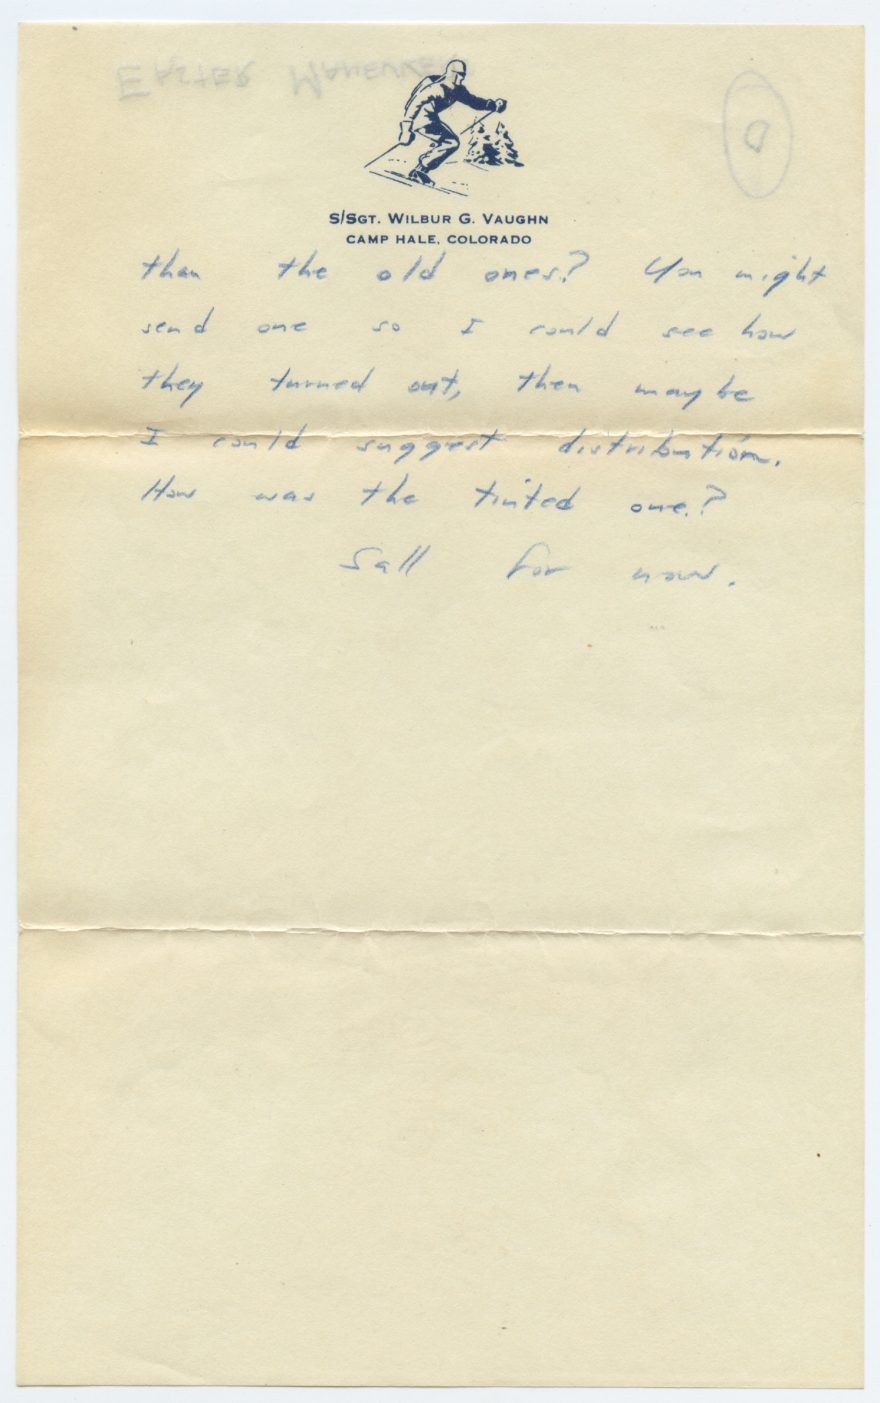 EASTER MANEUVER
S/SGT. WILBUR G. VAUGHN
CAMP HALE, COLORADO
than the old ones? You might
send one so I could see how
they turned out, then maybe
I could suggest distribution.
How was the tinted one?
Sall for now.